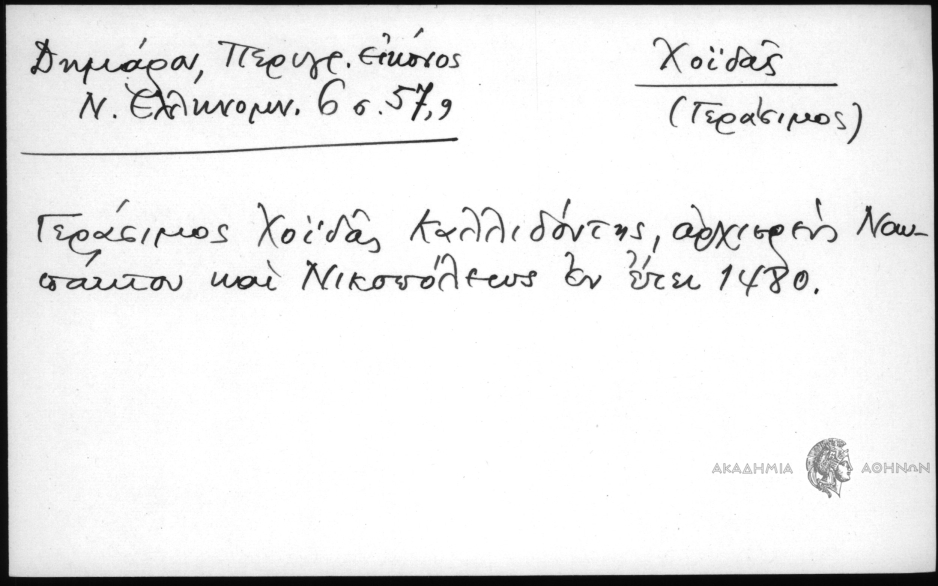 Δημιάρα, Περιγρ. εἰκόνος
Ν. Ἑλληνομν. 6 σ. 57,9
Χοϊδᾶς
(Γεράσιμος)
Γεράσιμος Χοϊδᾶς Καλλιδόντης, ἀρχιερεὺς Ναυ-
πάκτου καὶ Νικοπόλεως ἐν ἔτει 1480.
ΑΚΑΔΗΜΙΑ ΑΘΗΝΩΝ